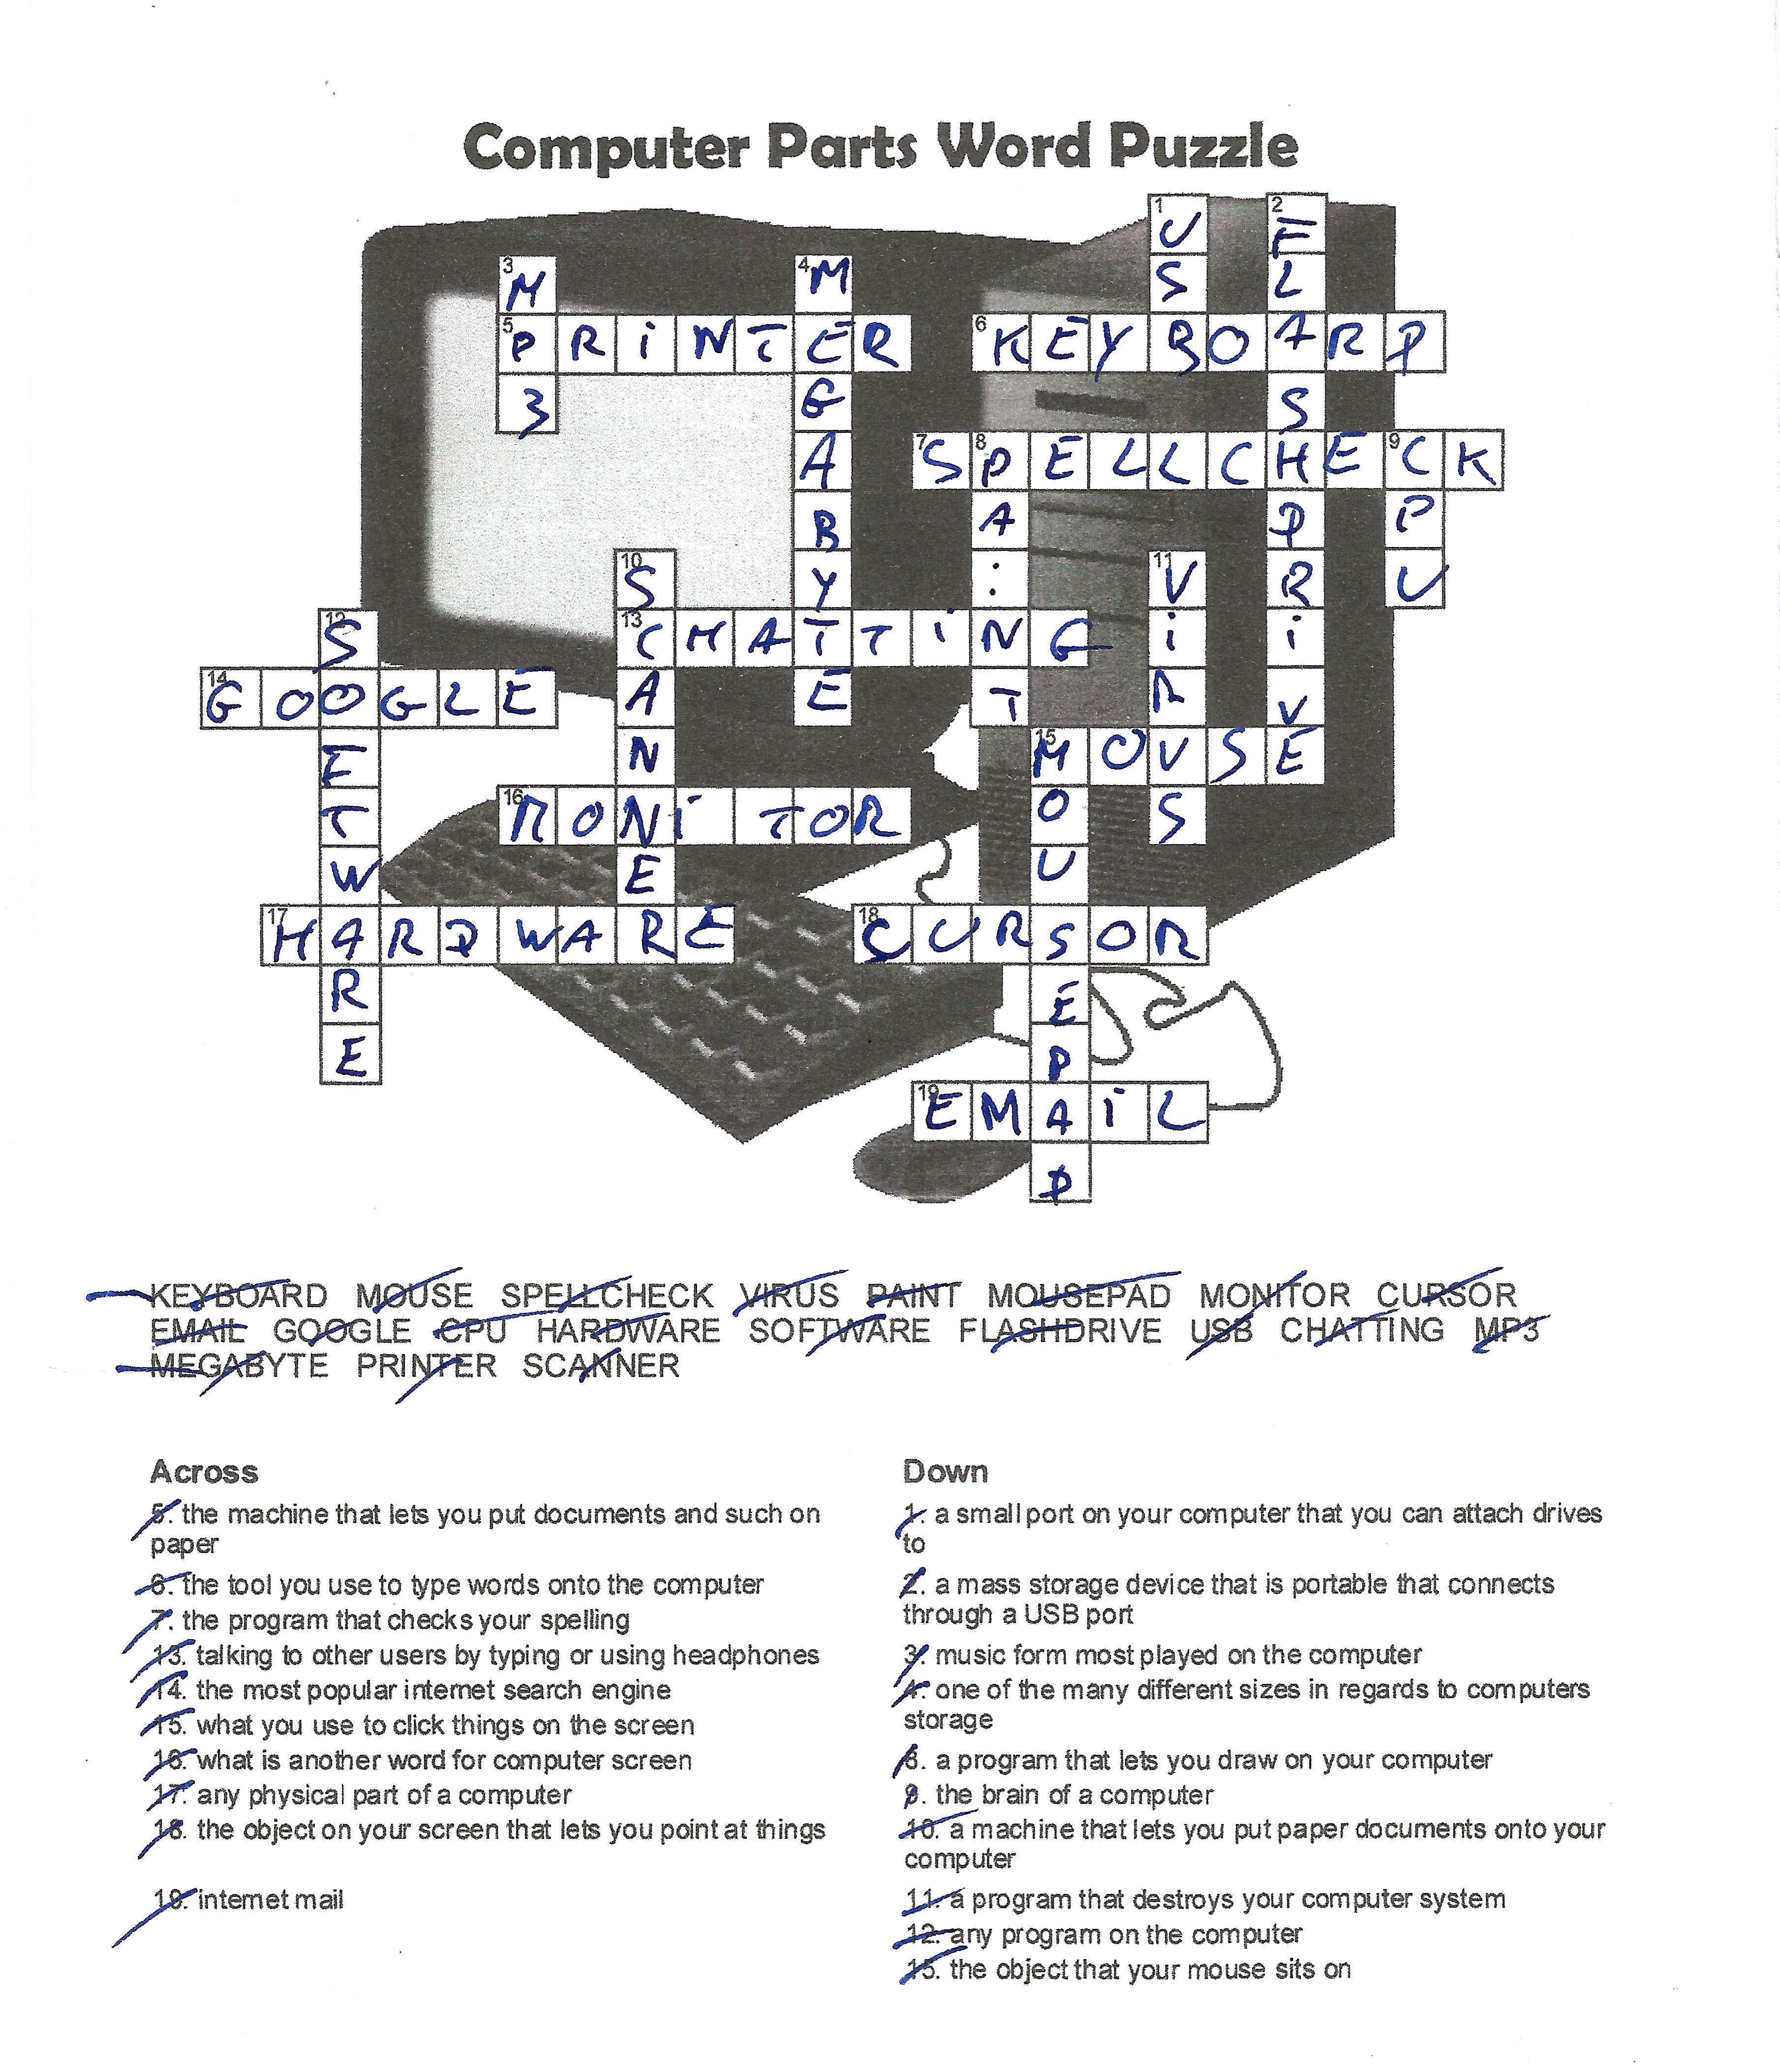 Computer Parts Word Puzzle
1 U 2 F
3 M 4 M S L
5 P R i N T E R 6 K E Y B O A R D
3 G S
A 7 S 8 P E L L C H E 9 C K
B A D P
10 S Y i 11 V R U
12 S 13 C H A T T i N G i i
14 G O O G L E A E T R V
F N 15 M O U S E
T 16 M O N i T O R O S
W E U
17 H A R D W A R E 18 C U R S O R
R E
E P
19 E M A i L
D
KEYBOARD MOUSE SPELLCHECK VIRUS PAINT MOUSEPAD MONITOR CURSOR
EMAIL GOOGLE CPU HARDWARE SOFTWARE FLASHDRIVE USB CHATTING MP3
MEGABYTE PRINTER SCANNER
Across
5. the machine that lets you put documents and such on
paper
6. the tool you use to type words onto the computer
7. the program that checks your spelling
13. talking to other users by typing or using headphones
14. the most popular internet search engine
15. what you use to click things on the screen
16. what is another word for computer screen
17. any physical part of a computer
18. the object on your screen that lets you point at things
19. internet mail
Down
1. a small port on your computer that you can attach drives
to
2. a mass storage device that is portable that connects
through a USB port
3. music form most played on the computer
4. one of the many different sizes in regards to computers
storage
8. a program that lets you draw on your computer
9. the brain of a computer
10. a machine that lets you put paper documents onto your
computer
11. a program that destroys your computer system
12. any program on the computer
15. the object that your mouse sits on